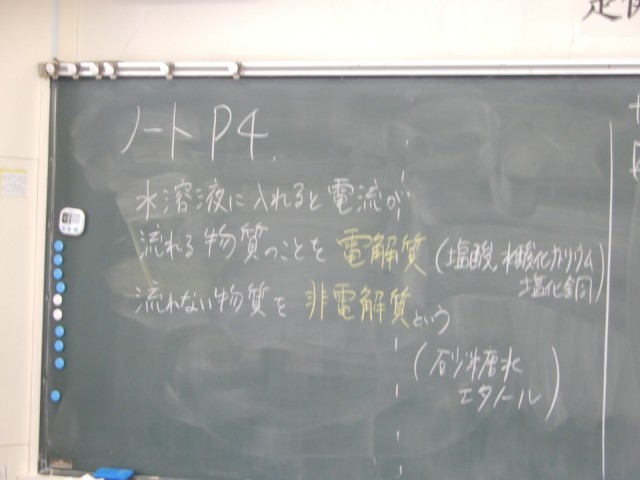 ノートP4
水溶液に入れると電流が
流れる物質のことを電解質(塩酸、水酸化カリウム
塩化銅)
流れない物質を非電解質という
(砂糖水
エタノール)